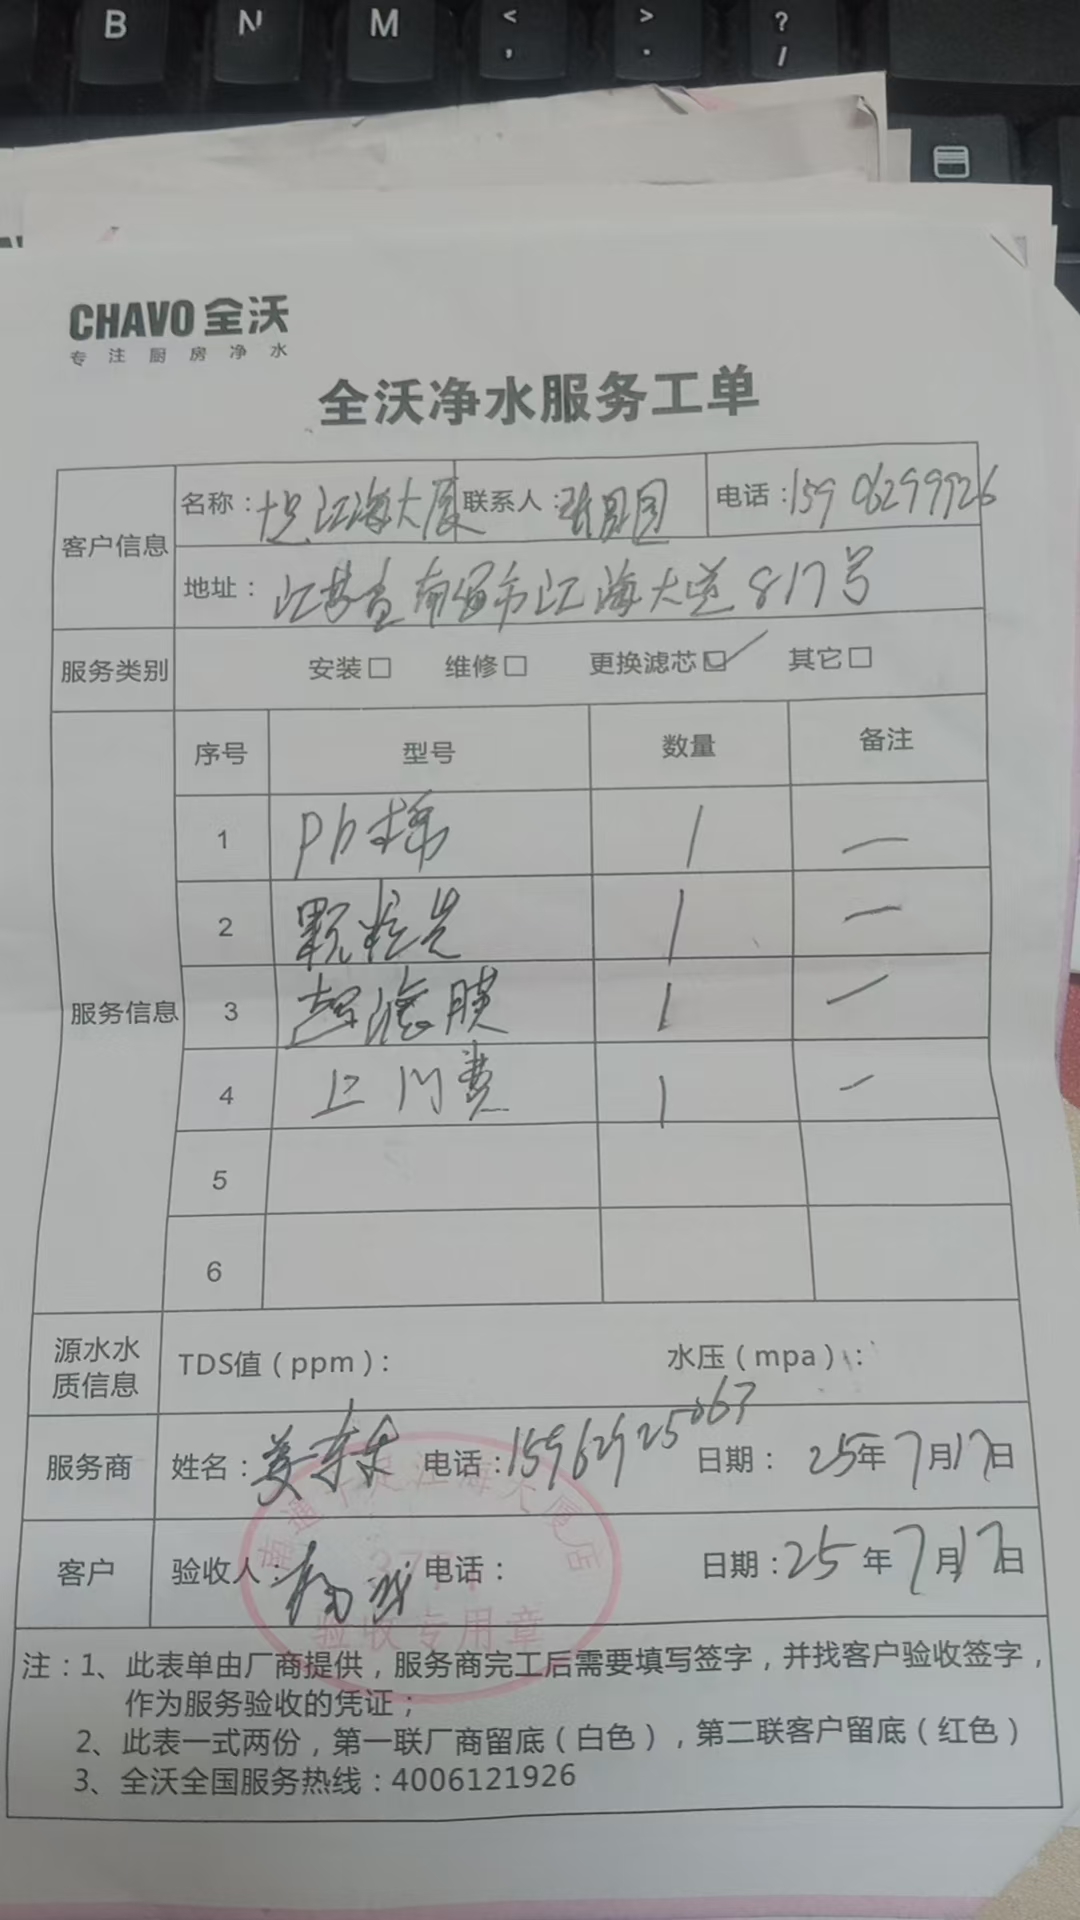 B N M < , > . ? /
CHAVO 全沃
专注厨房净水
全沃净水服务工单
客户信息 名称：十足江海大厦 联系人： 电话：15906299926
地址：江苏省南通市江海大道817号
服务类别 安装□ 维修□ 更换滤芯☑ 其它□
服务信息 序号 型号 数量 备注
1 Pb棉 1 —
2 颗粒炭 1 —
3 超滤膜 1 —
4 上门费 1 —
5
6
源水水质信息 TDS值（ppm）： 水压（mpa）：
服务商 姓名：姜东东 电话：15962925063 日期：25年7月17日
客户 验收人： 电话： 日期：25年7月17日
南通十足江海大厦店
3771
验收专用章
注：1、此表单由厂商提供，服务商完工后需要填写签字，并找客户验收签字，
作为服务验收的凭证；
2、此表一式两份，第一联厂商留底（白色），第二联客户留底（红色）
3、全沃全国服务热线：4006121926